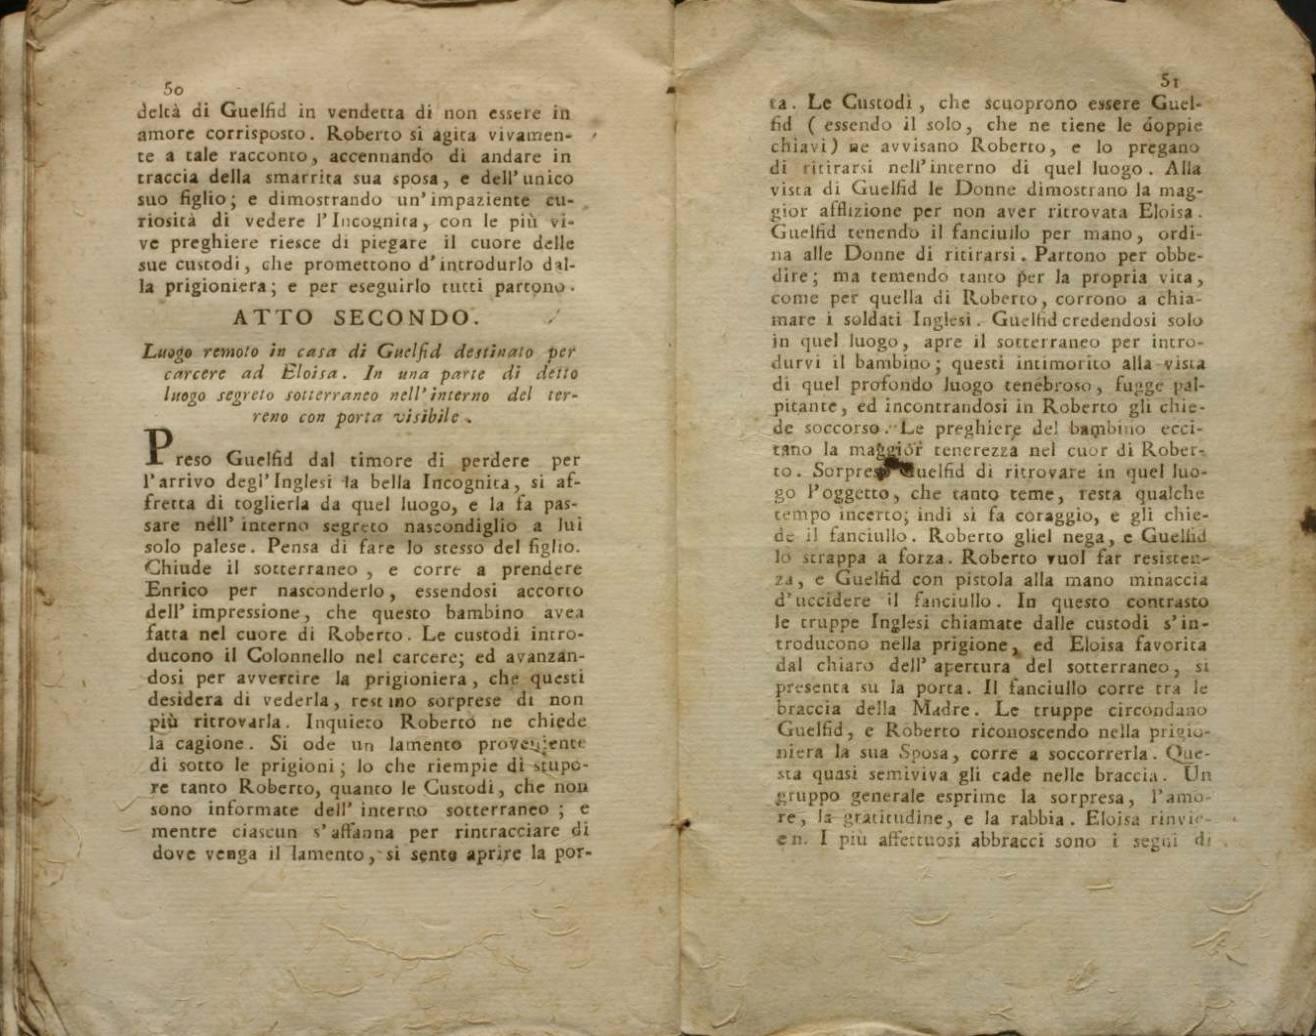 50
deltà di Guelfid in vendetta di non essere in
amore corrisposto. Roberto si agita vivamen-
te a tale racconto, accennando di andare in
traccia della smarrita sua sposa, e dell'unico
suo figlio; e dimostrando un'impaziente cu-
riosità di vedere l'Incognita, con le più vi-
ve preghiere riesce di piegare il cuore delle
sue custodi, che promettono d'introdurlo dal-
la prigioniera; e per eseguirlo tutti partono.
ATTO SECONDO.
Luogo remoto in casa di Guelfid destinato per
carcere ad Eloisa. In una parte di detto
luogo segreto sotterraneo nell'interno del ter-
reno con porta visibile.
Preso Guelfid dal timore di perdere per
l'arrivo degl'Inglesi la bella Incognita, si af-
fretta di toglierla da quel luogo, e la fa pas-
sare nell'interno segreto nascondiglio a lui
solo palese. Pensa di fare lo stesso del figlio.
Chiude il sotterraneo, e corre a prendere
Enrico per nasconderlo, essendosi accorto
dell'impressione, che questo bambino avea
fatta nel cuore di Roberto. Le custodi intro-
ducono il Colonnello nel carcere; ed avanzan-
dosi per avvertire la prigioniera, che questi
desidera di vederla, restano sorprese di non
più ritrovarla. Inquieto Roberto ne chiede
la cagione. Si ode un lamento proveniente
di sotto le prigioni; lo che riempie di stupo-
re tanto Roberto, quanto le Custodi, che non
sono informate dell'interno sotterraneo; e
mentre ciascun s'affanna per rintracciare di
dove venga il lamento, si sente aprire la por-
51
ta. Le Custodi, che scuoprono essere Guel-
fid (essendo il solo, che ne tiene le doppie
chiavi) ne avvisano Roberto, e lo pregano
di ritirarsi nell'interno di quel luogo. Alla
vista di Guelfid le Donne dimostrano la mag-
gior afflizione per non aver ritrovata Eloisa.
Guelfid tenendo il fanciullo per mano, ordi-
na alle Donne di ritirarsi. Partono per obbe-
dire; ma temendo tanto per la propria vita,
come per quella di Roberto, corrono a chia-
mare i soldati Inglesi. Guelfid credendosi solo
in quel luogo, apre il sotterraneo per intro-
durvi il bambino; questi intimorito alla vista
di quel profondo luogo tenebroso, fugge pal-
pitante, ed incontrandosi in Roberto gli chie-
de soccorso. Le preghiere del bambino ecci-
tano la maggior tenerezza nel cuor di Rober-
to. Sorpreso Guelfid di ritrovare in quel luo-
go l'oggetto, che tanto teme, resta qualche
tempo incerto; indi si fa coraggio, e gli chie-
de il fanciullo. Roberto gliel nega, e Guelfid
lo strappa a forza. Roberto vuol far resisten-
za, e Guelfid con pistola alla mano minaccia
d'uccidere il fanciullo. In questo contrasto
le truppe Inglesi chiamate dalle custodi s'in-
troducono nella prigione, ed Eloisa favorita
dal chiaro dell'apertura del sotterraneo, si
presenta su la porta. Il fanciullo corre tra le
braccia della Madre. Le truppe circondano
Guelfid, e Roberto riconoscendo nella prigio-
niera la sua Sposa, corre a soccorrerla. Que-
sta quasi semiviva gli cade nelle braccia. Un
gruppo generale esprime la sorpresa, l'amo-
re, la gratitudine, e la rabbia. Eloisa rinvie-
en. I più affettuosi abbracci sono i segni di